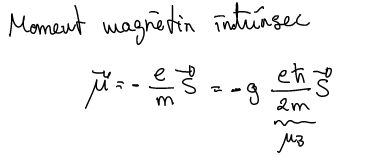 Moment magnetin intrinsec
μ⃗ = - e/m S⃗ = -g eħ/2m S⃗
μB